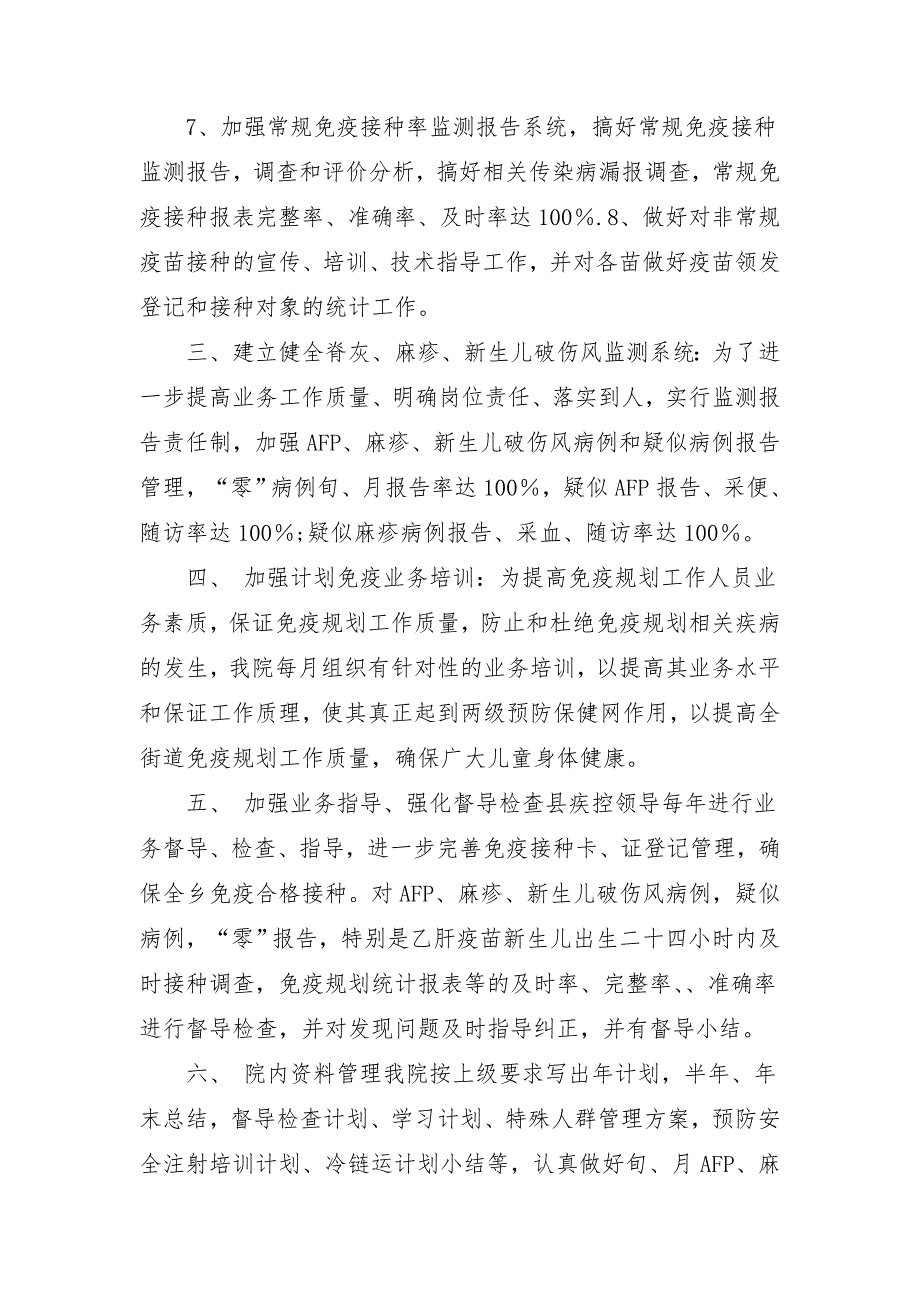 7、加强常规免疫接种率监测报告系统，搞好常规免疫接种
监测报告，调查和评价分析，搞好相关传染病漏报调查，常规免
疫接种报表完整率、准确率、及时率达 100％.8、做好对非常规
疫苗接种的宣传、培训、技术指导工作，并对各苗做好疫苗领发
登记和接种对象的统计工作。
三、建立健全脊灰、麻疹、新生儿破伤风监测系统：为了进
一步提高业务工作质量、明确岗位责任、落实到人，实行监测报
告责任制，加强 AFP、麻疹、新生儿破伤风病例和疑似病例报告
管理，“零”病例旬、月报告率达 100％，疑似 AFP 报告、采便、
随访率达 100％;疑似麻疹病例报告、采血、随访率达 100％。
四、 加强计划免疫业务培训：为提高免疫规划工作人员业
务素质，保证免疫规划工作质量，防止和杜绝免疫规划相关疾病
的发生，我院每月组织有针对性的业务培训，以提高其业务水平
和保证工作质理，使其真正起到两级预防保健网作用，以提高全
街道免疫规划工作质量，确保广大儿童身体健康。
五、 加强业务指导、强化督导检查县疾控领导每年进行业
务督导、检查、指导，进一步完善免疫接种卡、证登记管理，确
保全乡免疫合格接种。对 AFP、麻疹、新生儿破伤风病例，疑似
病例，“零”报告，特别是乙肝疫苗新生儿出生二十四小时内及
时接种调查，免疫规划统计报表等的及时率、完整率、、准确率
进行督导检查，并对发现问题及时指导纠正，并有督导小结。
六、 院内资料管理我院按上级要求写出年计划，半年、年
末总结，督导检查计划、学习计划、特殊人群管理方案，预防安
全注射培训计划、冷链运计划小结等，认真做好旬、月 AFP、麻